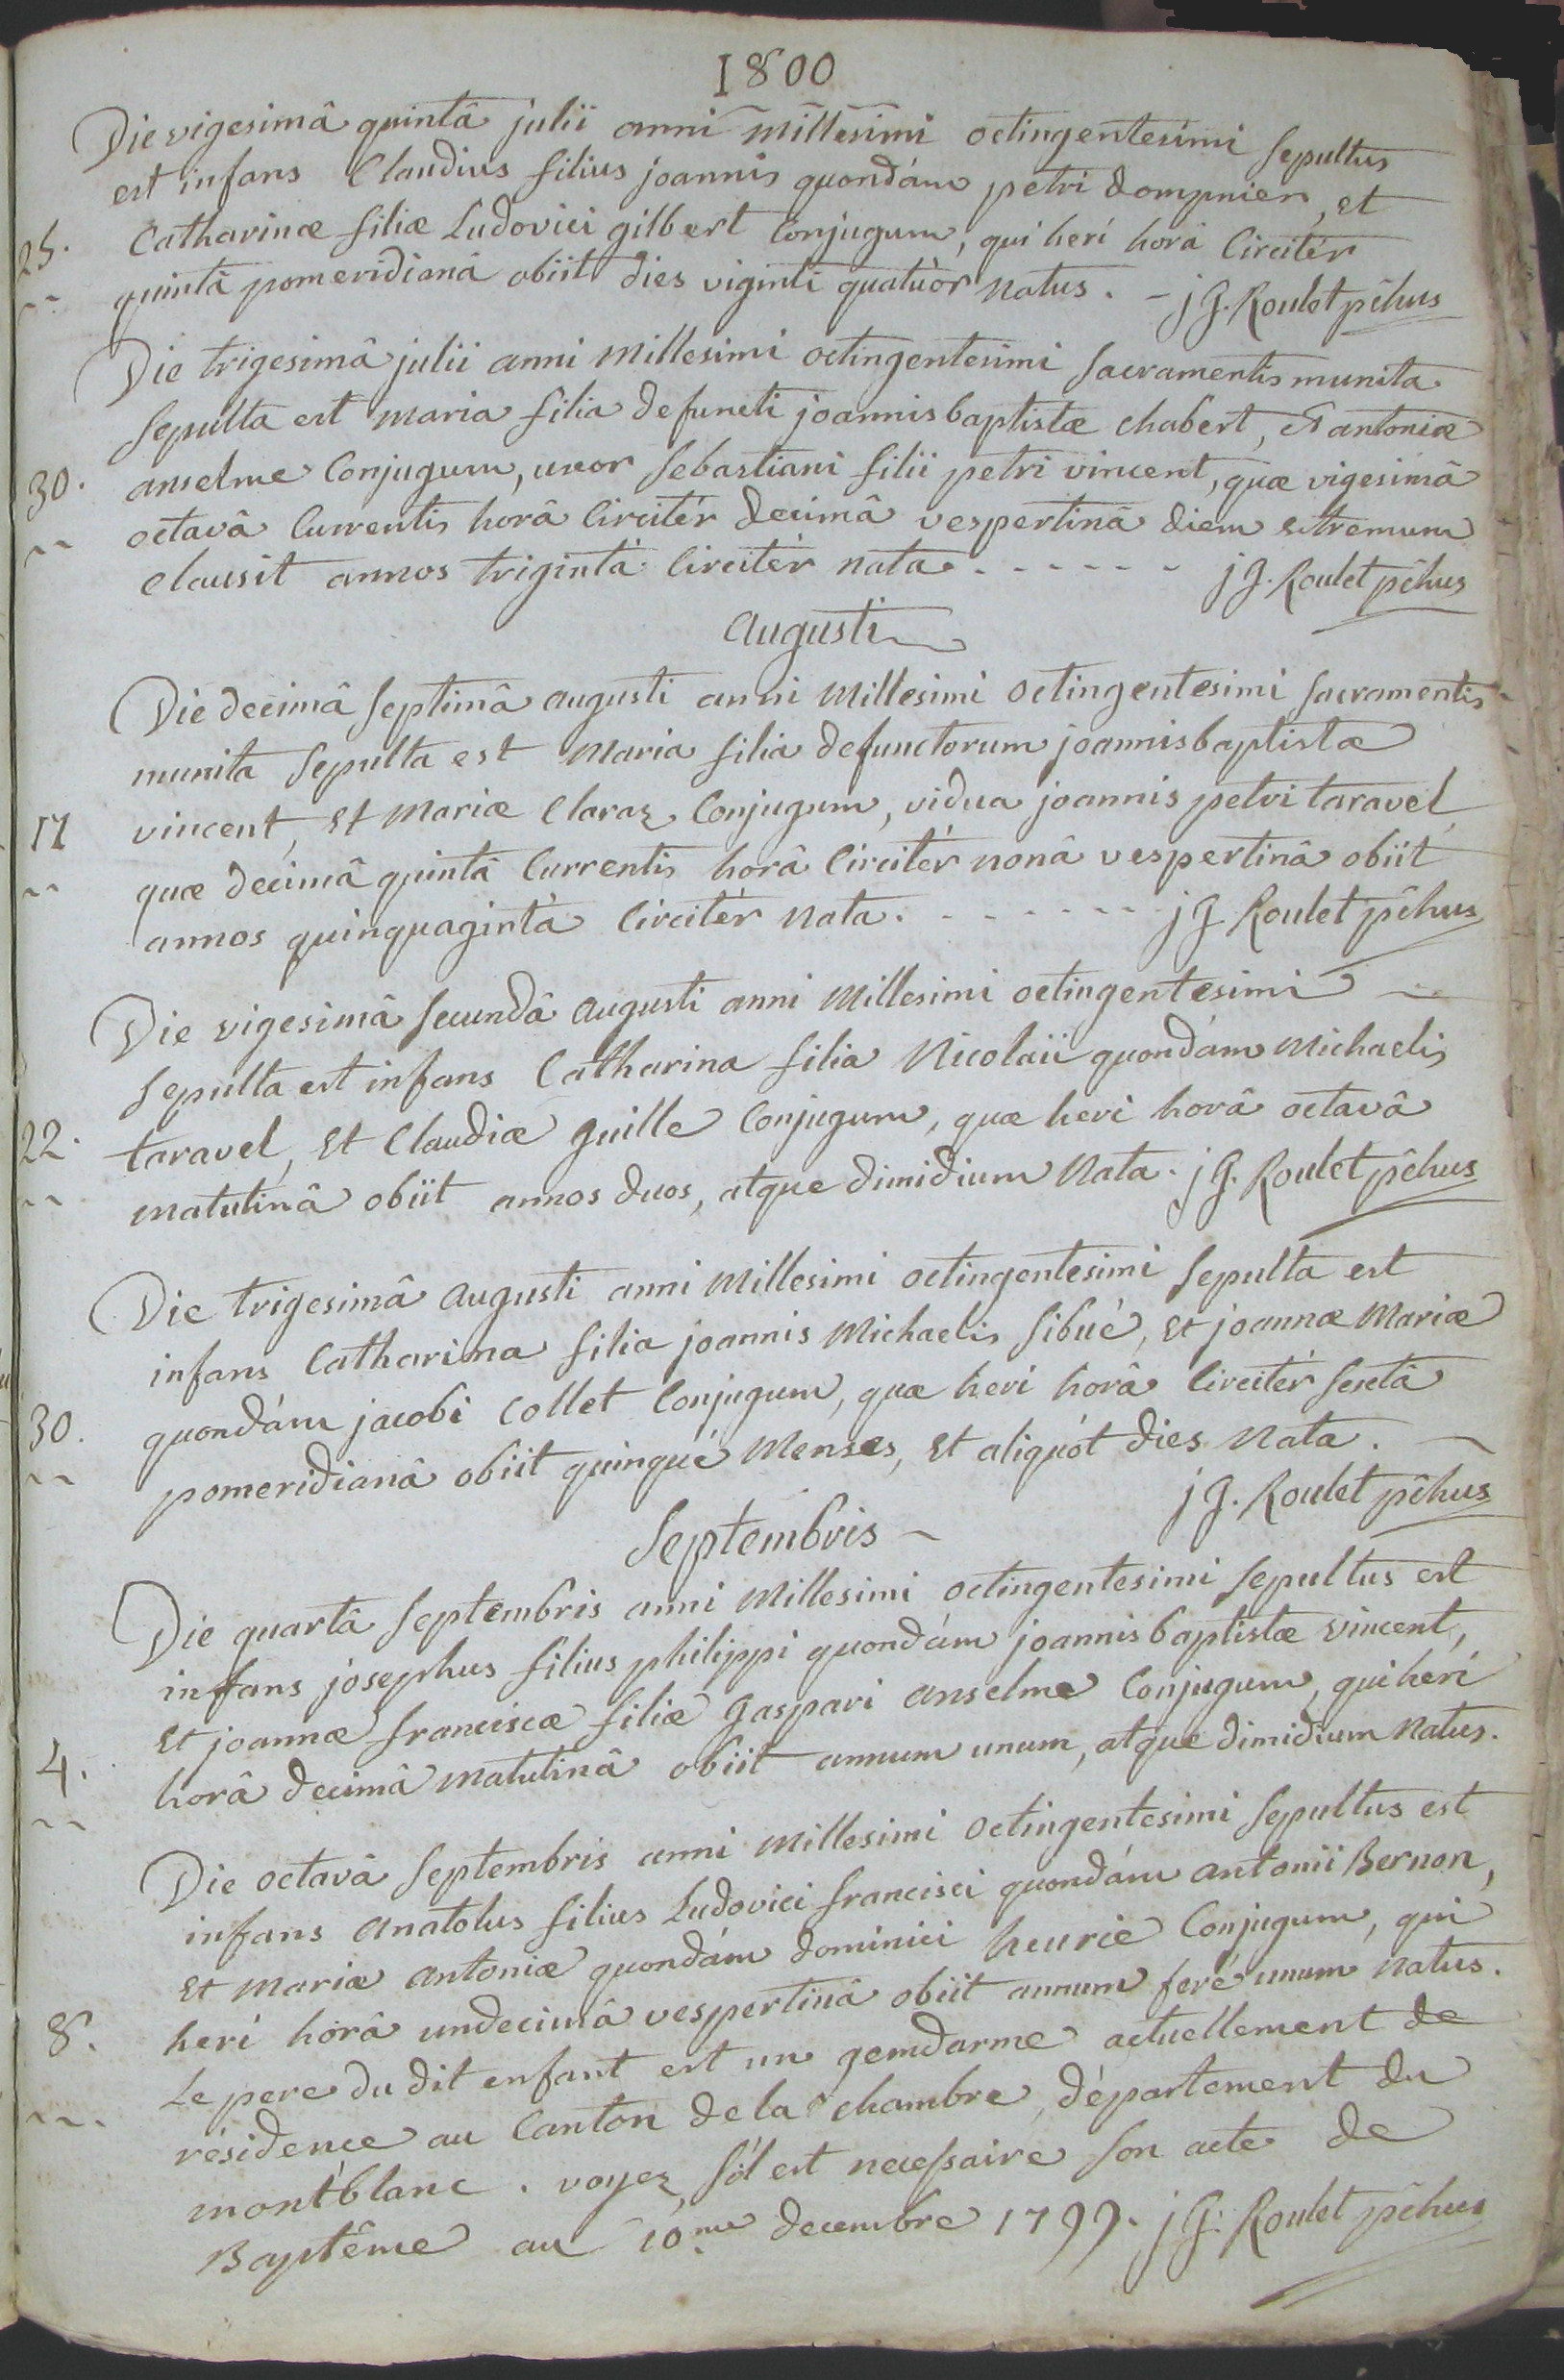 1800
Die vigesimâ quintâ julii anni Millesimi octingentesimi sepultus
est infans Claudius filius joannis quondám petri dompnier, et
25. Catharinæ filiæ Ludovici gilbert Conjugum, qui herí horâ Circitér
quintâ pomeridianâ obiit dies viginti quatuòr natus. - j G. Roulet pchus
Die trigesimâ julii anni Millesimi octingentesimi sacramentis munita
sepulta est maria filia defuncti joannisbaptistæ chabert, et antoniæ
30. anselme Conjugum, uxor sebastiani filii petri vincent, quæ vigesimâ
octavâ Currentis horâ Circitér decimâ vespertinâ diem extremum
clausit annos trigintá Circitér nata. - - - - - - j G. Roulet pchus
Augusti
Die decimâ septimâ augusti anni Millesimi octingentesimi sacramentis
munita sepulta est Maria filia defunctorum joannisbaptistæ
17 vincent, et Mariæ Claraz Conjugum, vidua joannis petri taravel
quæ decimâ quintâ Currentis horâ Circitér nonâ vespertinâ obiit
annos quinquagintá Circitér nata. - - - - - - - j G Roulet pchus
Die vigesimâ secundâ augusti anni Millesimi octingentesimi
sepulta est infans Catharina filia Nicolaii quondám Michaelis
22. taravel, et Claudiæ guille Conjugum, quæ heri horâ octavâ
matutinâ obiit annos duos, atque dimidium Nata. j G. Roulet pchus
Die trigesimâ augusti anni Millesimi octingentesimi sepulta est
infans Catharina filia joannis Michaelis sibué, et joannæ Mariæ
30. quondám jacobi collet Conjugum, quæ heri horâ Circitér sextâ
pomeridianâ obiit quinqué Menses, et aliquót dies Nata.
j G. Roulet pchus
Septembris
Die quartâ septembris anni Millesimi octingentesimi sepultus est
infans josephus filius philippi quondám joannisbaptistæ vincent,
et joannæ franciscæ filiæ gaspari anselme Conjugum, qui herí
4. horâ decimâ matutinâ obiit annum unum, atque dimidium Natus.
Die octavâ septembris anni Millesimi octingentesimi sepultus est
infans anatolus filius Ludovici francisci quondám antonii Bernon,
et Mariæ antoniæ quondám dominici heurie Conjugum, qui
8. herí horâ undecimâ vespertinâ obiit annum feré unum natus.
Le pere du dit enfant est un gemdarme actuellement de
résidence au Canton de la chambre, département du
montblanc. voyez, s'il est necessaire son acte de
Baptême au 10.me decembre 1799. j G. Roulet pchus